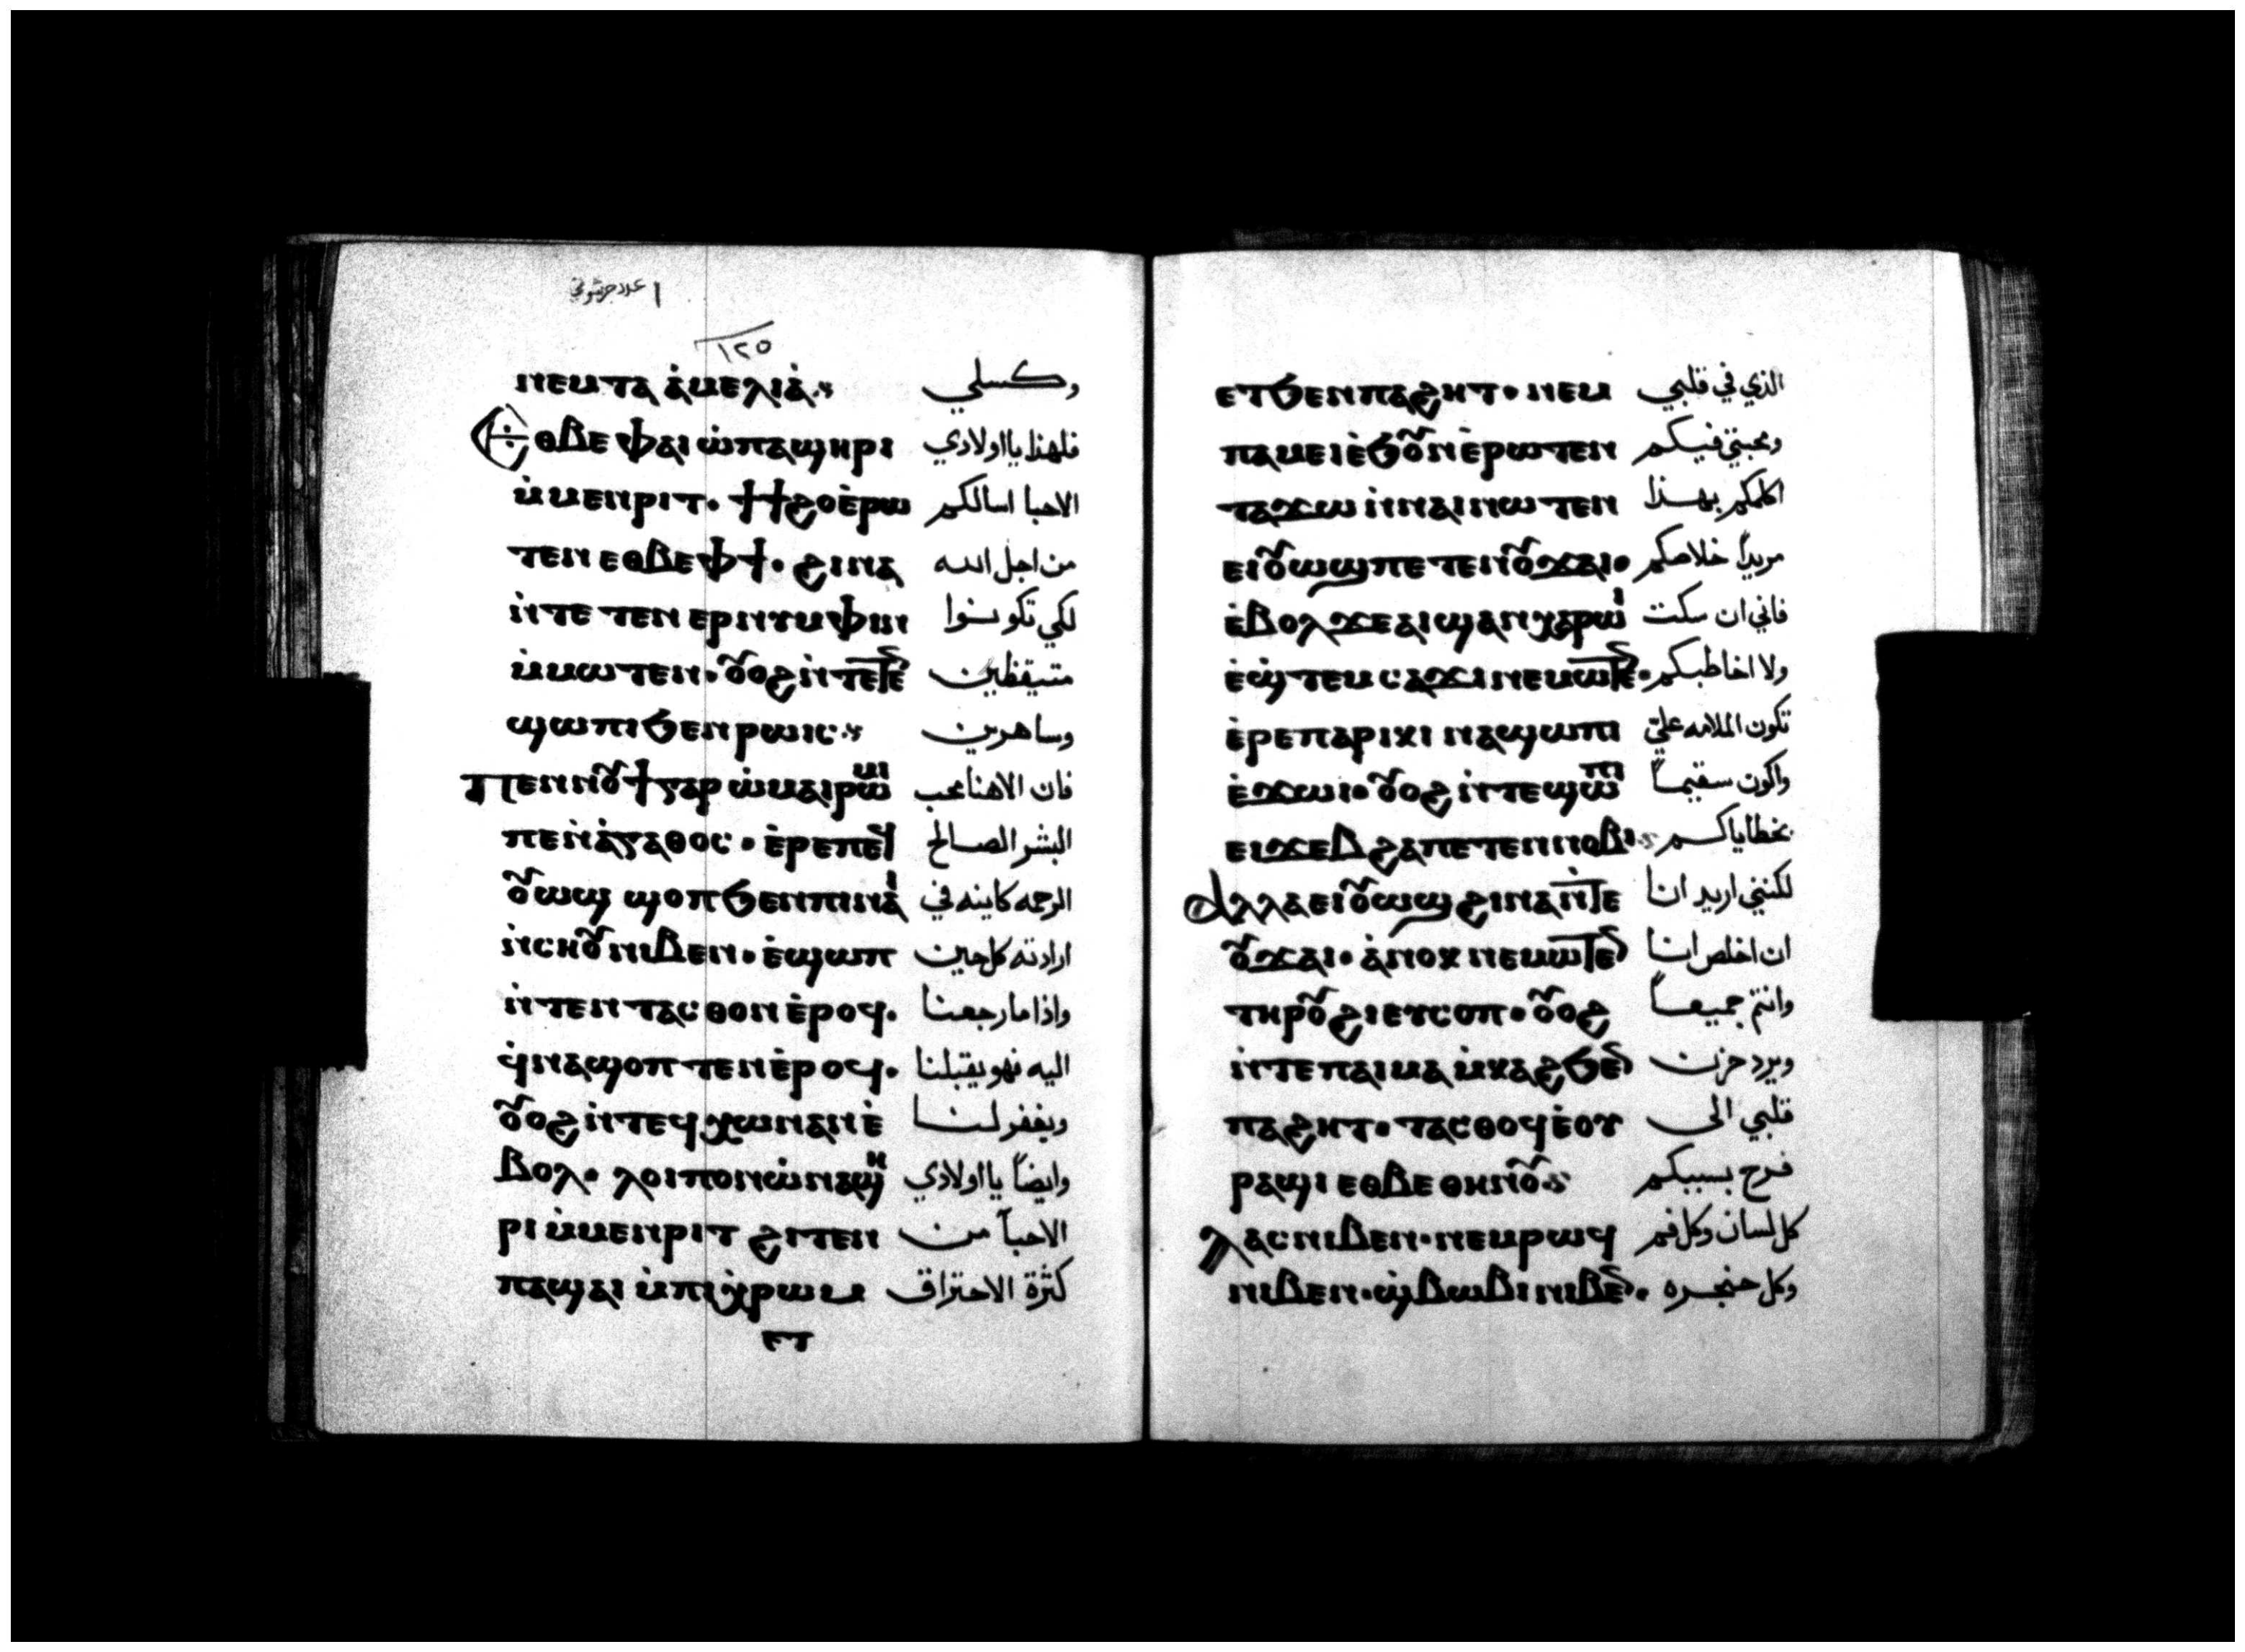 ١ عدد جرشوني
١٢٥
ⲛⲉⲙ ⲧⲁ ⲁ̀ⲙⲉⲗⲓⲁ̀ وكسلي
ⲉⲑⲃⲉ ⲫⲁⲓ ⲱ̀ ⲡⲁϣⲏⲣⲓ فلهذا يا اولادي
ⲙ̀ⲙⲉⲛⲣⲓⲧ· ϯϯϩⲟ ⲉ̀ⲣⲱ الاحبا اسالكم
ⲧⲉⲛ ⲉⲑⲃⲉ ⲫϯ· ϩⲓⲛⲁ من اجل الله
ⲛ̀ⲧⲉ ⲧⲉⲛ ⲉⲣⲛⲩⲙⲫⲓⲛ لكي تكونوا
ⲙ̀ⲙⲱⲧⲉⲛ· ⲟⲩⲟϩ ⲛ̀ⲧⲉⲧⲉⲛ متيقظين
ϣⲱⲡⲓ ϧⲉⲛ ⲣⲱⲓⲥ وساهرين
ⲡⲉⲛⲛⲟⲩϯ ⲅⲁⲣ ⲱ̀ⲙⲁⲓⲣⲱⲙⲓ فان الاهنا محب
ⲡⲉⲛⲁ̀ⲅⲁⲑⲟⲥ· ⲉ̀ⲣⲉ ⲡⲉϥ البشر الصالح
ⲟⲩⲱϣ ϣⲟⲡ ϧⲉⲛ ⲡⲓⲛⲁⲓ̀ الرحمه كاينه في
ⲛ̀ⲥⲏⲟⲩ ⲛⲓⲃⲉⲛ· ⲉ̀ϣⲱⲡ ارادته كل حين
ⲛ̀ⲧⲉⲛ ⲧⲁⲥⲑⲟⲛ ⲉ̀ⲣⲟϥ· واذا ما رجعنا
ϥ̀ⲛⲁϣⲟⲡⲧⲉⲛ ⲉ̀ⲣⲟϥ· اليه فهو يقبلنا
ⲟⲩⲟϩ ⲛ̀ⲧⲉϥ ⲭⲱ ⲛⲁⲛ ⲉ̀ ويغفر لنا
ⲃⲟⲗ· ⲗⲟⲓⲡⲟⲛ ⲱ̀ ⲛⲁϣⲏ وايضاً يا اولادي
ⲣⲓ ⲙ̀ⲙⲉⲛⲣⲓⲧ ϩⲓⲧⲉⲛ الاحبآ من
ⲡⲁϣⲁⲓ ⲙ̀ⲡⲓⲭ̀ⲣⲱⲙ كثرة الاحتراق
ⲉⲧ
ⲉⲧϧⲉⲛ ⲡⲁϩⲏⲧ· ⲛⲉⲙ الذي في قلبي
ⲡⲁⲙⲉⲓ ⲉ̀ϧⲟⲩⲛ ⲉ̀ⲣⲱⲧⲉⲛ ومحبتي فيكم
ⲧⲁϫⲱ ⲛ̀ⲛⲁⲓ ⲛⲱⲧⲉⲛ اكلمكم بهذا
ⲉⲓⲟⲩⲱϣ ⲡⲉⲧⲉⲛⲟⲩϫⲁⲓ· مريداً خلاصكم
ⲉ̀ⲃⲟⲗ ϫⲉ ⲁⲓϣⲁⲛⲭⲁⲣⲱⲓ̀ فاني ان سكت
ⲉ̀ϣ̀ⲧⲉⲙ ⲥⲁϫⲓ ⲛⲉⲙⲱⲧⲉⲛ· ولا اخاطبكم
ⲉ̀ⲣⲉ ⲡⲁⲣⲓⲕⲓ ⲛⲁϣⲱⲡⲓ تكون الملامه عليّ
ⲉ̀ϫⲱⲓ· ⲟⲩⲟϩ ⲛ̀ⲧⲉϣⲱⲡⲓ واكون سقيماً
ⲉⲓϫⲉⲃ ϩⲁ ⲡⲉⲧⲉⲛⲛⲟⲃⲓ بخطاياكم
ⲁⲗⲗⲁ ⲉⲓⲟⲩⲱϣ ϩⲓⲛⲁ ⲛ̀ⲧⲉ لكنني اريد انا
ⲟⲩϫⲁⲓ· ⲁ̀ⲛⲟⲕ ⲛⲉⲙⲱⲧⲉⲛ ان اخلص انا
ⲧⲏⲣⲟⲩ ϩⲓ ⲉⲩⲥⲟⲡ· ⲟⲩⲟϩ وانتم جميعاً
ⲛ̀ⲧⲉ ⲡⲁⲓⲙⲁ ⲙ̀ⲕⲁϩ ϧⲉⲛ ويرد حزن
ⲡⲁϩⲏⲧ· ⲧⲁⲥⲑⲟϥ ⲉ̀ⲟⲩ قلبي الى
ⲣⲁϣⲓ ⲉⲑⲃⲉ ⲑⲏⲛⲟⲩ فرح بسببكم
ⲗⲁⲥ ⲛⲓⲃⲉⲛ· ⲛⲉⲙ ⲣⲱϥ كل لسان وكل فم
ⲛⲓⲃⲉⲛ· ϣ̀ⲃⲱⲃⲓ ⲛⲓⲃⲉⲛ· وكل حنجره